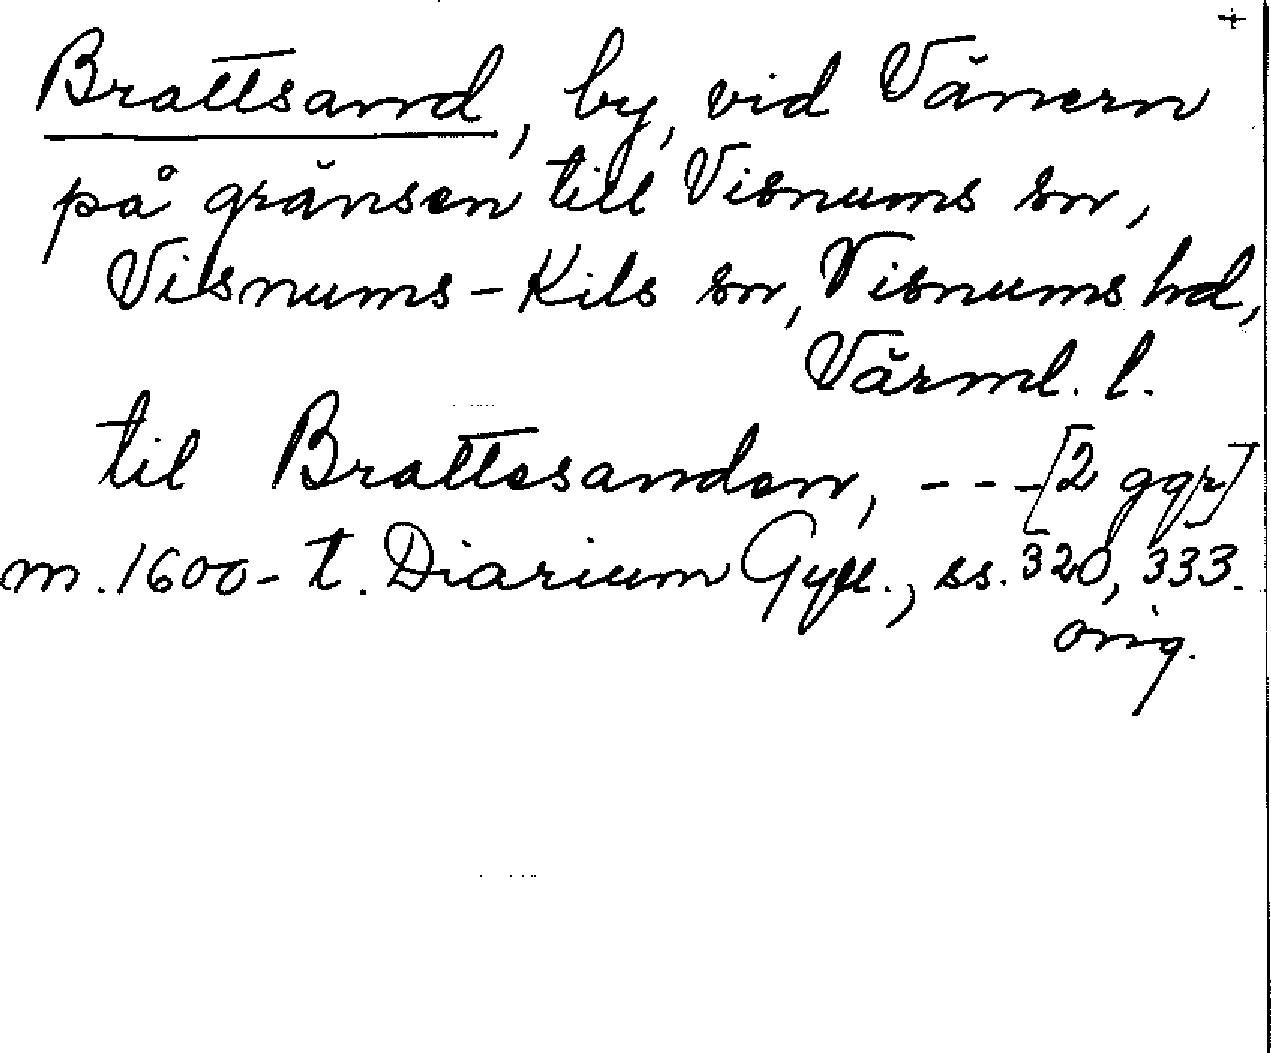 +
Brattsand, by, vid Vänern
på gränsen till Visnums sn,
Visnums-Kils sn, Visnums hd,
Värml. l.
til Brattesanden, --- [2 ggr]
m. 1600-t. Diarium Gyll., ss. 320, 333.
orig.